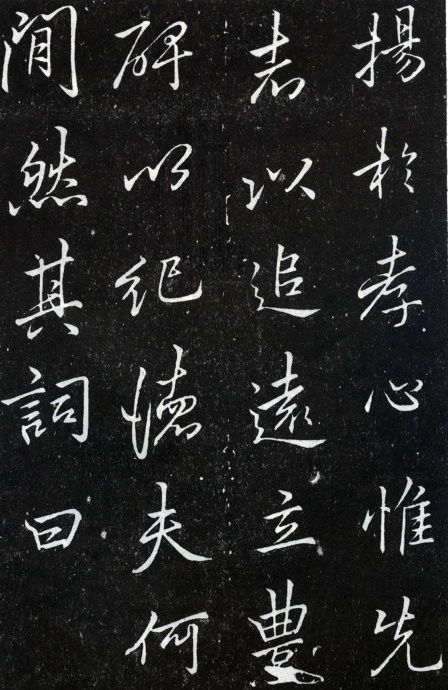 揚於孝心惟先
者以追遠立豊
碑以紀德夫何
間然其詞曰